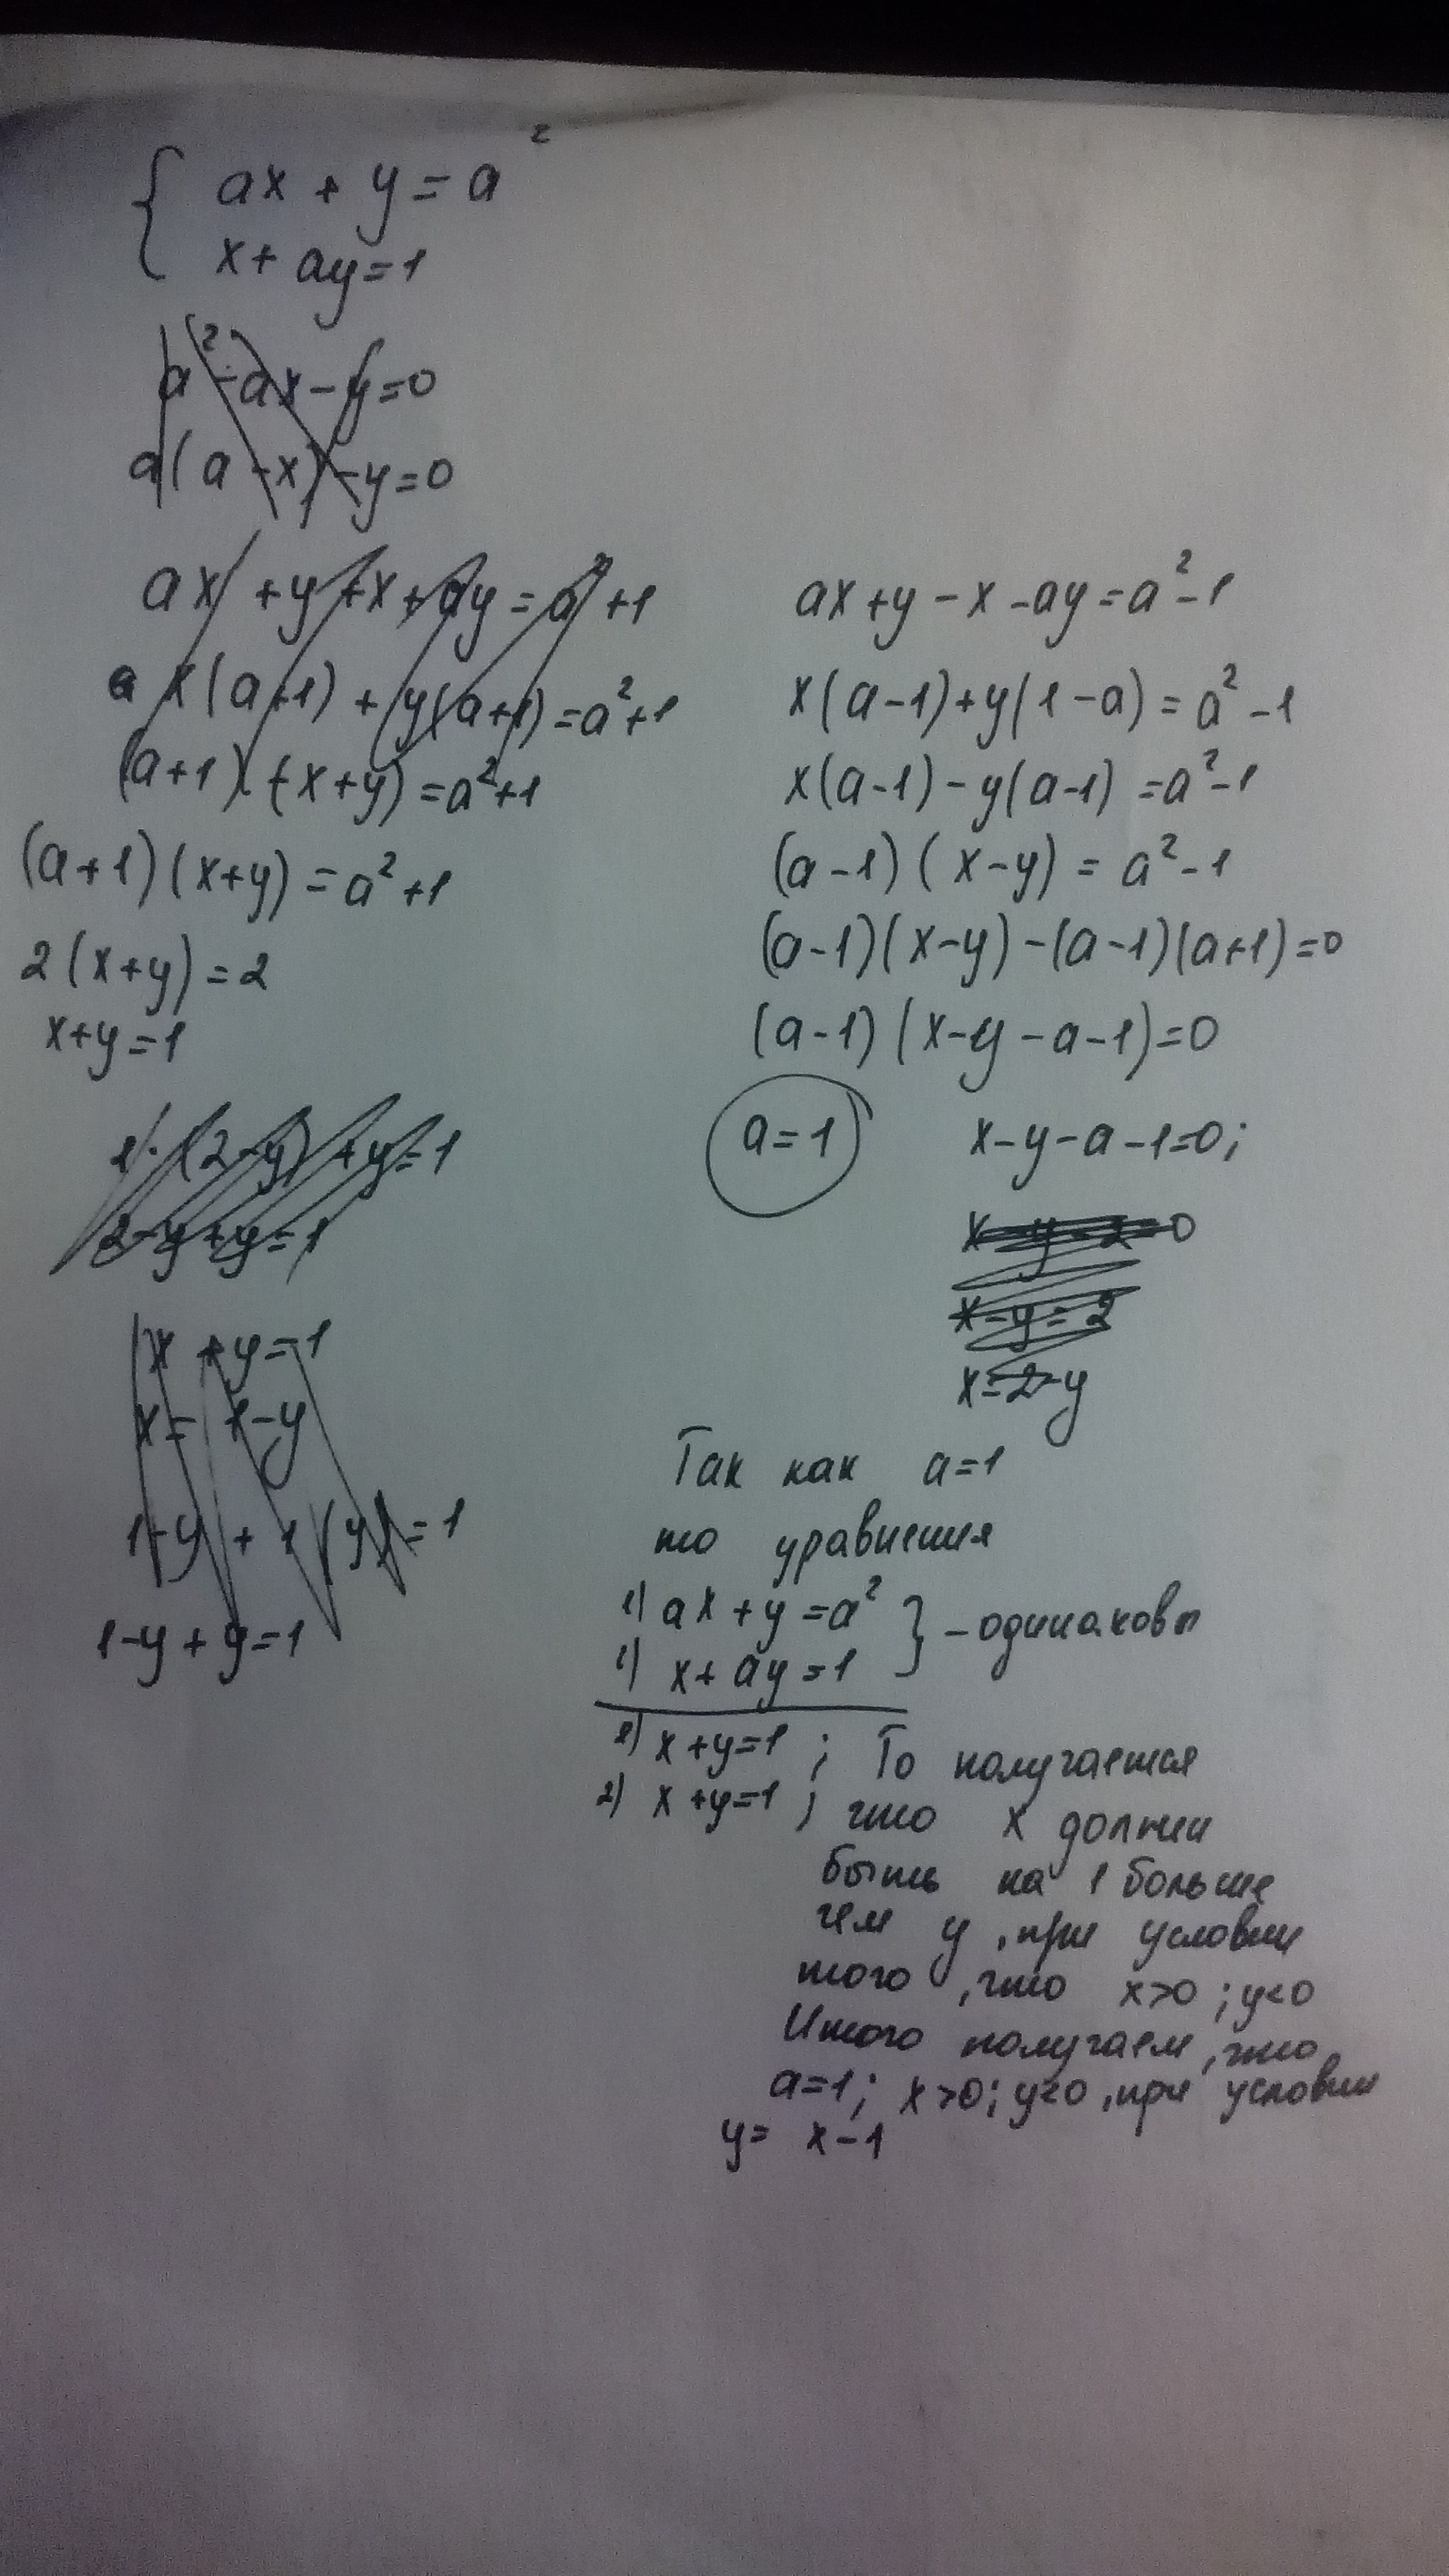 { ax + y = a²
x + ay = 1
a² - ax - y = 0
a(a - x) - y = 0
ax + y + x + ay = a² + 1
x(a+1) + y(a+1) = a² + 1
(a+1) (x+y) = a² + 1
(a+1)(x+y) = a² + 1
2(x+y) = 2
x+y = 1
1·(2-y) + y = 1
2-y+y=1
x + y = 1
x = 1-y
1-y + 1(y) = 1
1-y + y = 1
ax + y - x - ay = a² - 1
x(a-1) + y(1-a) = a² - 1
x(a-1) - y(a-1) = a² - 1
(a-1) (x-y) = a² - 1
(a-1)(x-y) - (a-1)(a+1) = 0
(a-1) (x-y-a-1) = 0
a=1 x-y-a-1=0;
x-y-2=0
x-y=2
x=2-y
Так как a=1
то уравнения
1) ax + y = a² } - одинаковы
1) x + ay = 1
2) x+y=1 ; То получается
2) x+y=1 ; что x должен
быть на 1 больше
чем y, при условии
того, что x>0; y<0
Итого получаем, что
a=1; x>0; y<0, при условии
y = x-1